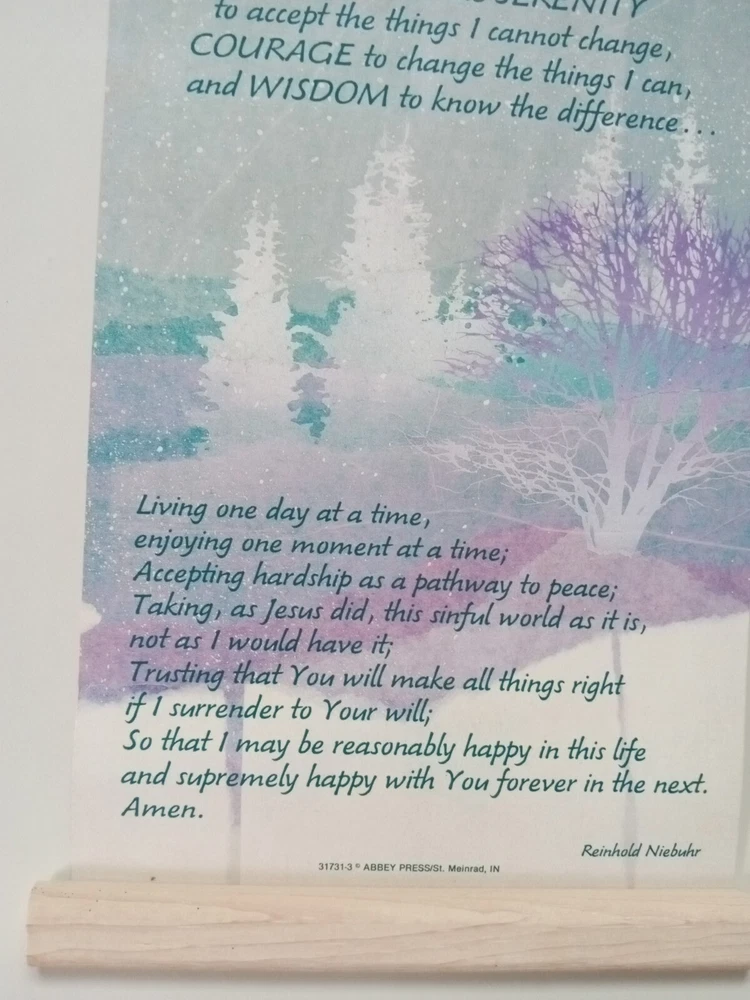 SERENITY
to accept the things I cannot change,
COURAGE to change the things I can,
and WISDOM to know the difference...
Living one day at a time,
enjoying one moment at a time;
Accepting hardship as a pathway to peace;
Taking, as Jesus did, this sinful world as it is,
not as I would have it;
Trusting that You will make all things right
if I surrender to Your will;
So that I may be reasonably happy in this life
and supremely happy with You forever in the next.
Amen.
Reinhold Niebuhr
31731-3 © ABBEY PRESS/St. Meinrad, IN